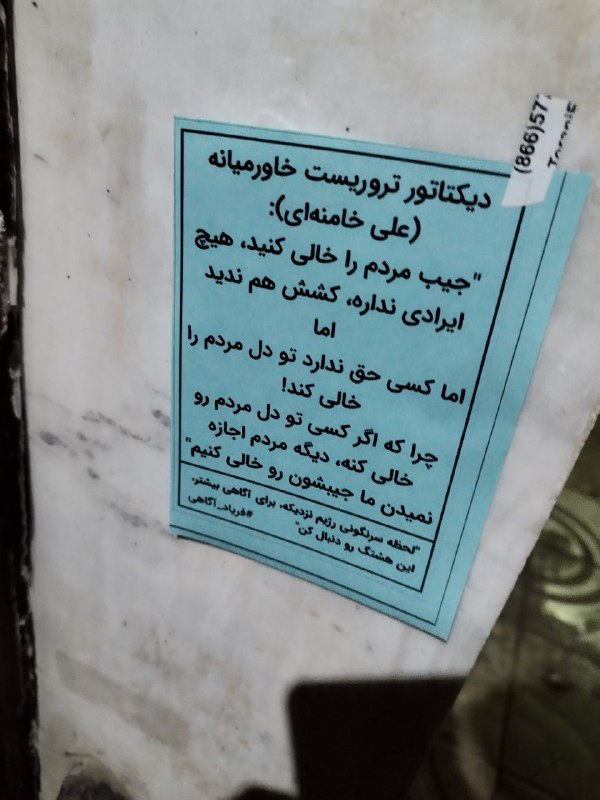 دیکتاتور تروریست خاورمیانه
(علی خامنه‌ای):
"جیب مردم را خالی کنید، هیچ
ایرادی نداره، کشش هم ندید
اما
اما کسی حق ندارد تو دل مردم را
خالی کند!
چرا که اگر کسی تو دل مردم رو
خالی کنه، دیگه مردم اجازه
نمیدن ما جیبشون رو خالی کنیم"
"لحظه سرنگونی رژیم نزدیکه، برای آگاهی بیشتر،
این هشتگ رو دنبال کن"
#فریاد_آگاهی
(866)577